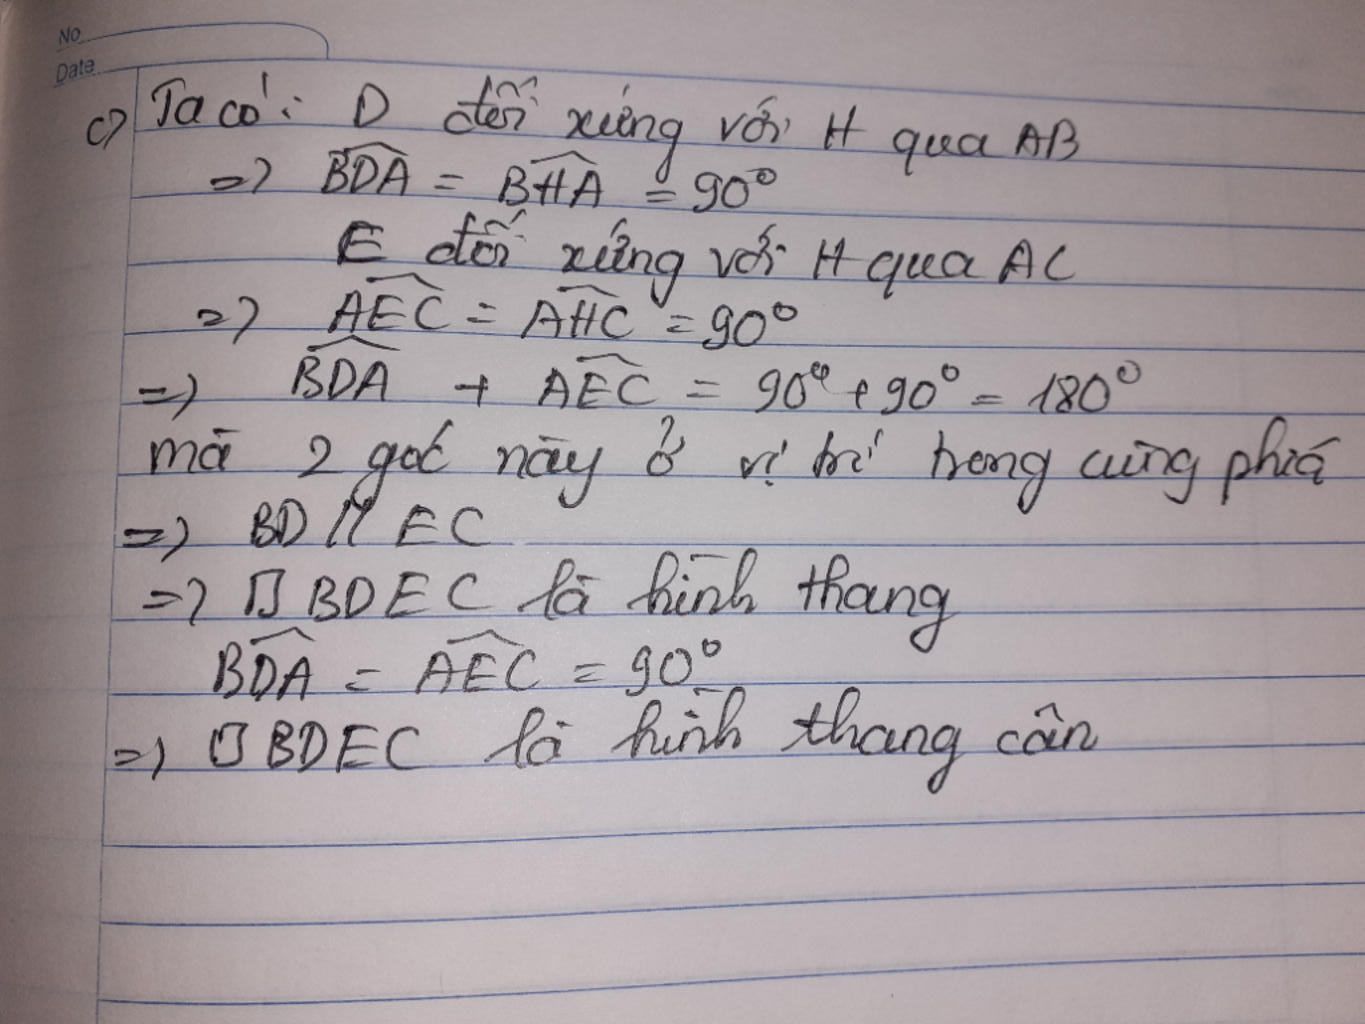 No
Date
c) Ta có: D đối xứng với H qua AB
=> BDA = BHA = 90°
E đối xứng với H qua AC
=> AEC = AHC = 90°
=> BDA + AEC = 90° + 90° = 180°
mà 2 góc này ở vị trí trong cùng phiá
=> BD // EC
=> □ BDEC là hình thang
BDA = AEC = 90°
=> □ BDEC là hình thang cân